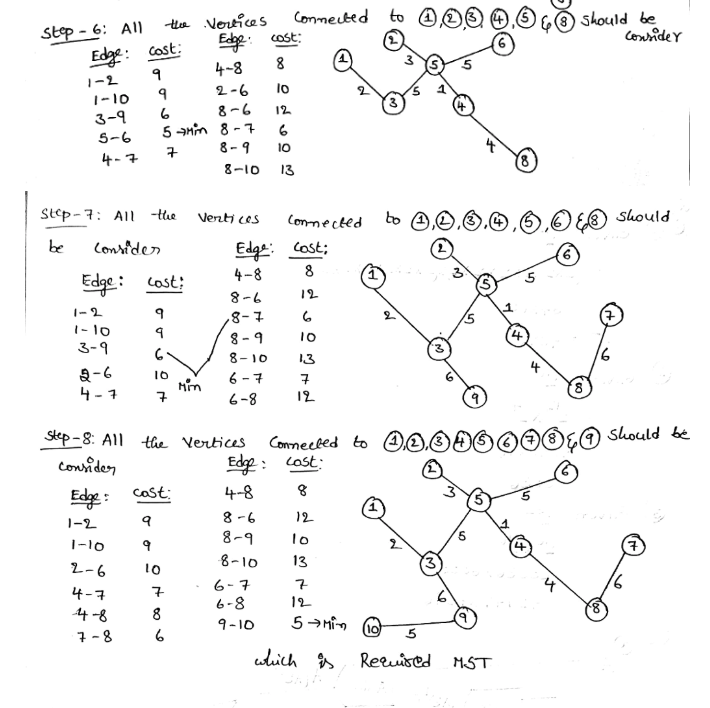 Step-6: All the Vertices Connected to ①,②,③,④,⑤ & ⑧ should be
Consider
Edge: Cost: Edge: Cost:
1-2 9 4-8 8
1-10 9 2-6 10
3-9 6 8-6 12
5-6 5 →Min 8-7 6
4-7 7 8-9 10
8-10 13
① ② ③ ⑤ ⑥ ④ ⑧
2 3 5 5 1 4
Step-7: All the Vertices Connected to ①,②,③,④,⑤,⑥ & ⑧ should
be Consider
Edge: Cost: Edge: Cost:
1-2 9 4-8 8
1-10 9 8-6 12
3-9 6 8-7 6
2-6 10 8-9 10
4-7 7 8-10 13
6-7 7
6-8 12
Min
① ② ③ ⑤ ⑥ ④ ⑦ ⑧ ⑨
2 3 5 5 1 4 6 6
Step-8: All the Vertices Connected to ①,②,③④⑤⑥⑦⑧ & ⑨ should be
Consider
Edge: Cost: Edge: Cost:
1-2 9 4-8 8
1-10 9 8-6 12
2-6 10 8-9 10
4-7 7 8-10 13
4-8 8 6-7 7
7-8 6 6-8 12
9-10 5 →Min
① ② ③ ⑤ ⑥ ④ ⑦ ⑧ ⑨ ⑩
2 3 5 5 1 4 6 6 5
which is Required MST